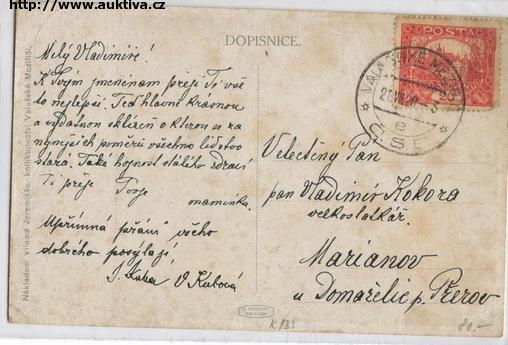 http://www.auktiva.cz
DOPISNICE.
Milý Vladimíre!
K Tvým jmeninam přeji Ti vše
to nejlepší. Teď hlavně krásnou
a vydatnou sklizeň o kterou se za
nynejších pomeru všechno lidstvo
stará. Také hojnost stálého zdraví
Ti přeje Tvoje
maminka.
Upřímná přání všeho
dobrého posýlají
J. Kuba O Kubová
Nákladem Viléma Jeremiáše, knihkupectví Valašské Meziříčí.
POSTA
VALAŠSKÉ MEZIŘÍČÍ
e
Č.S.P.
Velectěný Pan
pan Vladimír Kokora
velkostatkář.
Marianov
u Domaželic p. Přerov
K 132
80.-